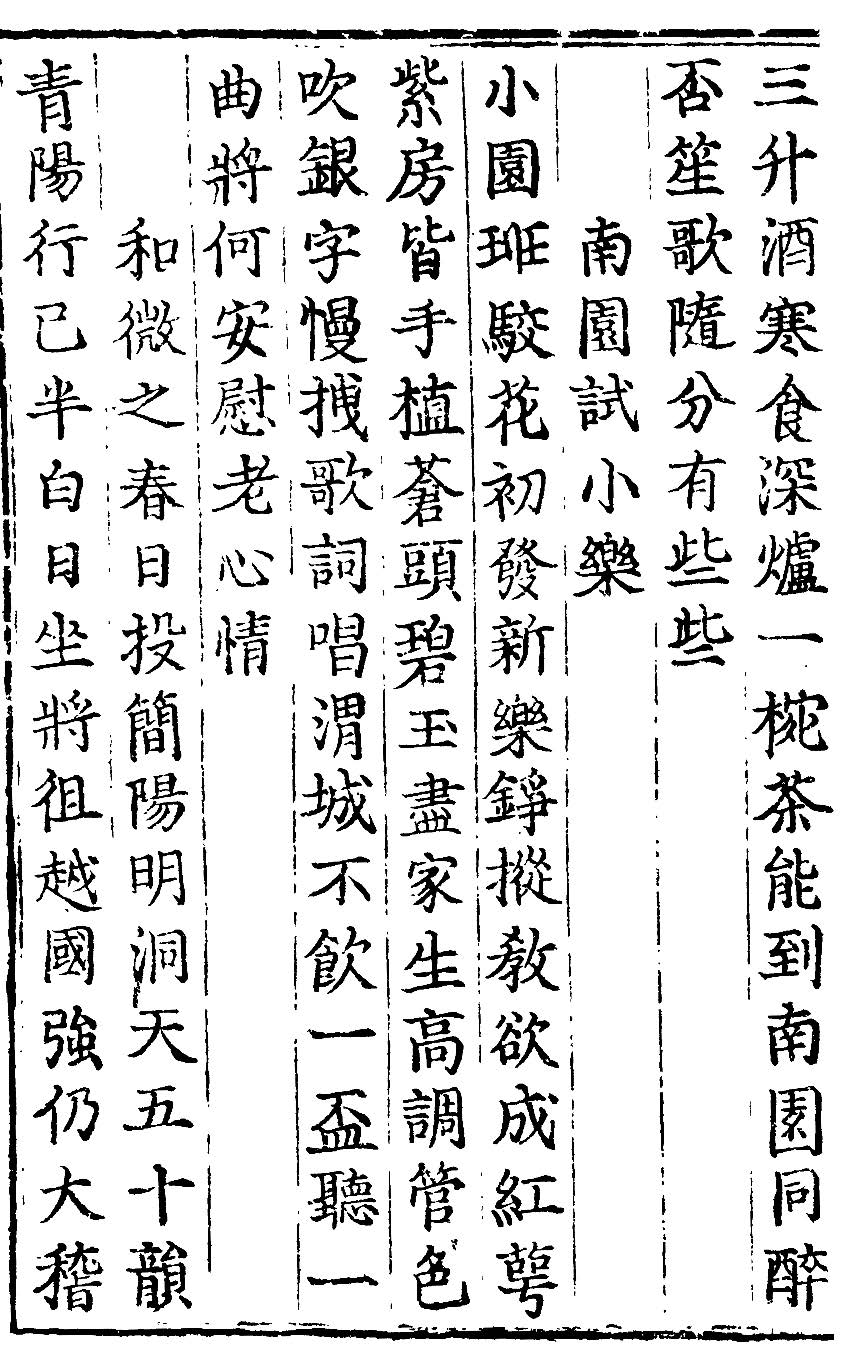 三升酒寒食深爐一椀茶能到南園同醉
否笙歌隨分有些些
南園試小樂
小園班駮花初發新樂錚摐教欲成紅萼
紫房皆手植蒼頭碧玉盡家生高調管色
吹銀字慢拽歌詞唱渭城不飲一盃聽一
曲將何安慰老心情
和微之春日投簡陽明洞天五十韻
青陽行已半白日坐將徂越國強仍大稽